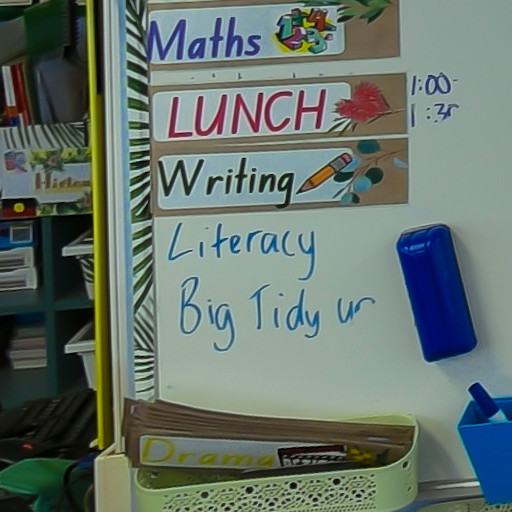 Maths
LUNCH
1:00-
Writing
Literacy
Big Tidy
Drama